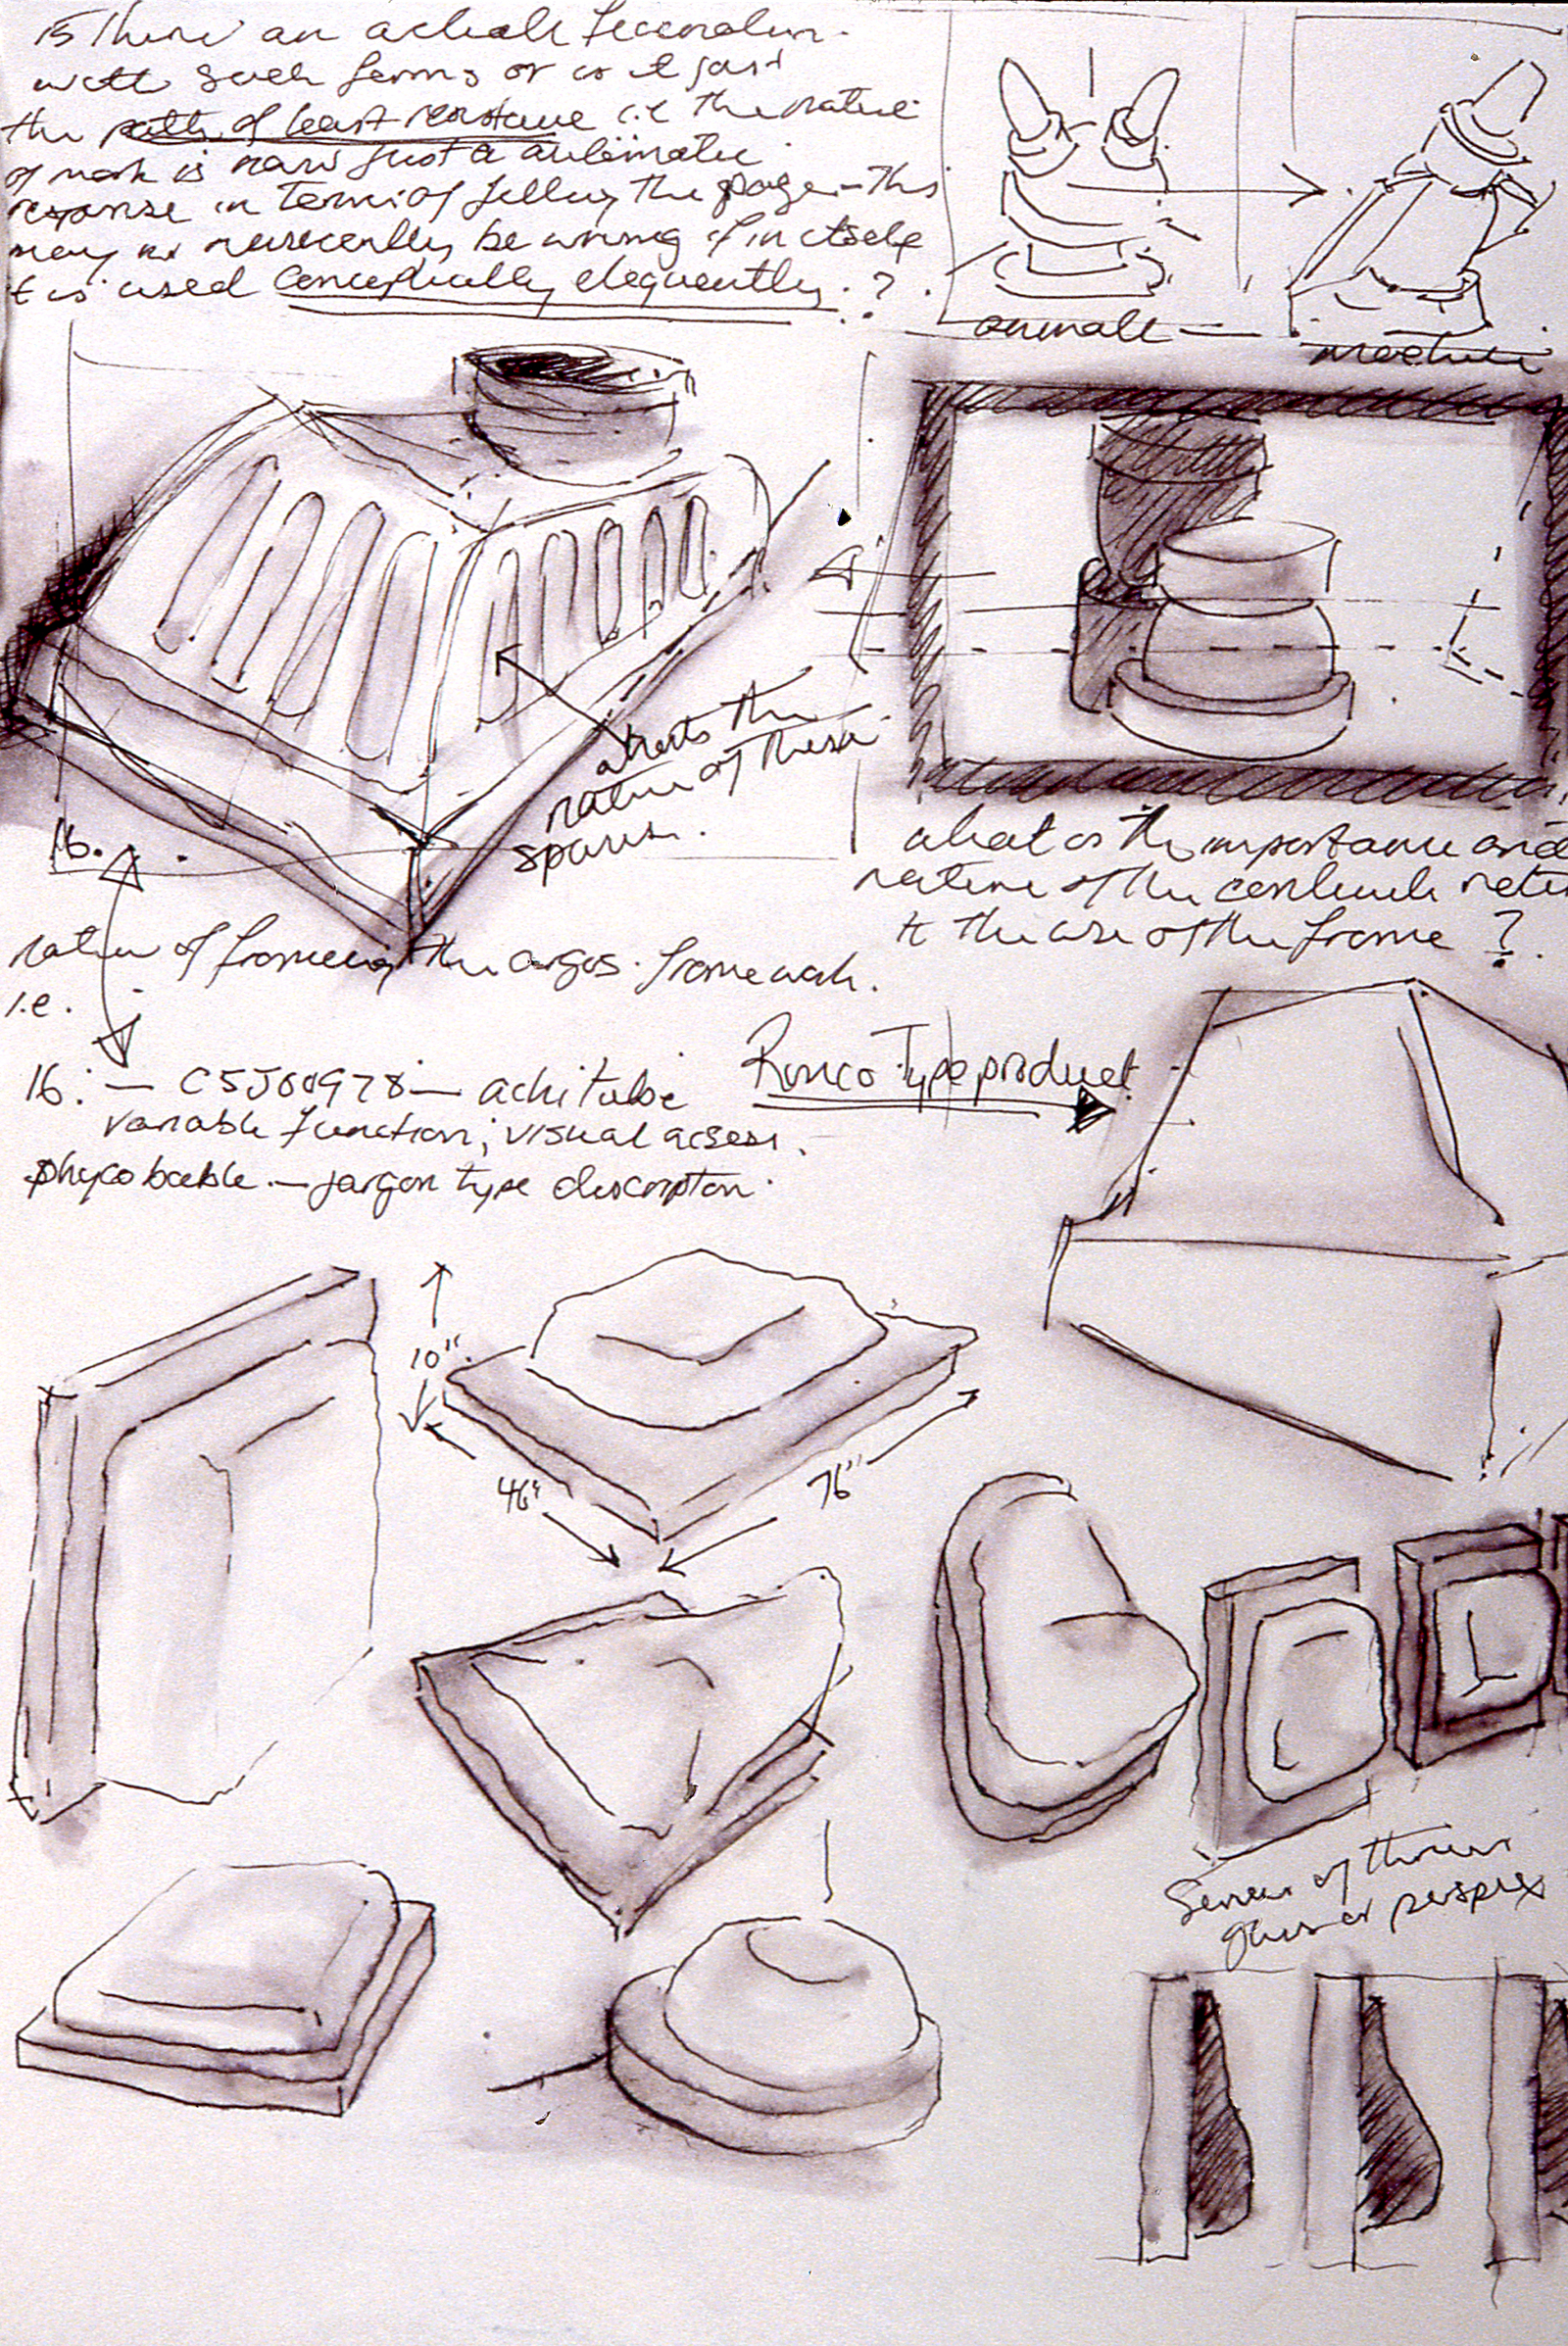 is there an actual fascination
with such forms or is it just
the path of least resistance i.e the nature
of mark is now just a automatic
response in terms of filling the page - this
may not necessarily be wrong if in itself
it is used conceptually eloquently. ?
animal —
machine
what's the
nature of these
spaces.
16.
what is the importance and
nature of the
to the use of the frame ?
nature of framing the argos. framework.
i.e.
16. — C5J00978 — 
variable function; visual access.
phycobabble. — jargon type description.
Ronco Type product
10"
46"
76"
Series of three
glass or perspex